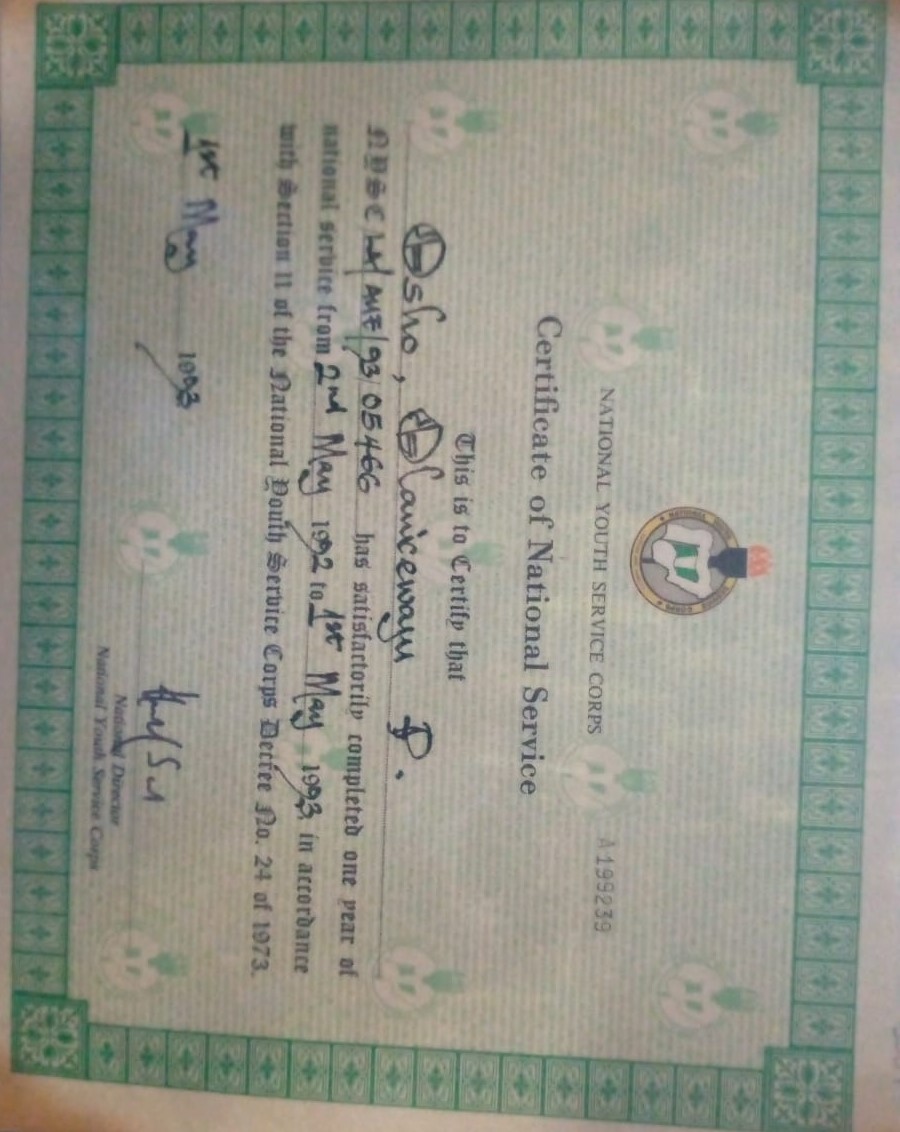 A199239
NATIONAL YOUTH SERVICE CORPS
Certificate of National Service
This is to Certify that
Osho, Olanicewaju P.
NYSC/ /93/05466 has satisfactorily completed one year of
national service from 2nd May 1992 to 1st May 1993, in accordance
with Section 11 of the National Youth Service Corps Decree No. 24 of 1973.
1st May 1993
National Director
National Youth Service Corps